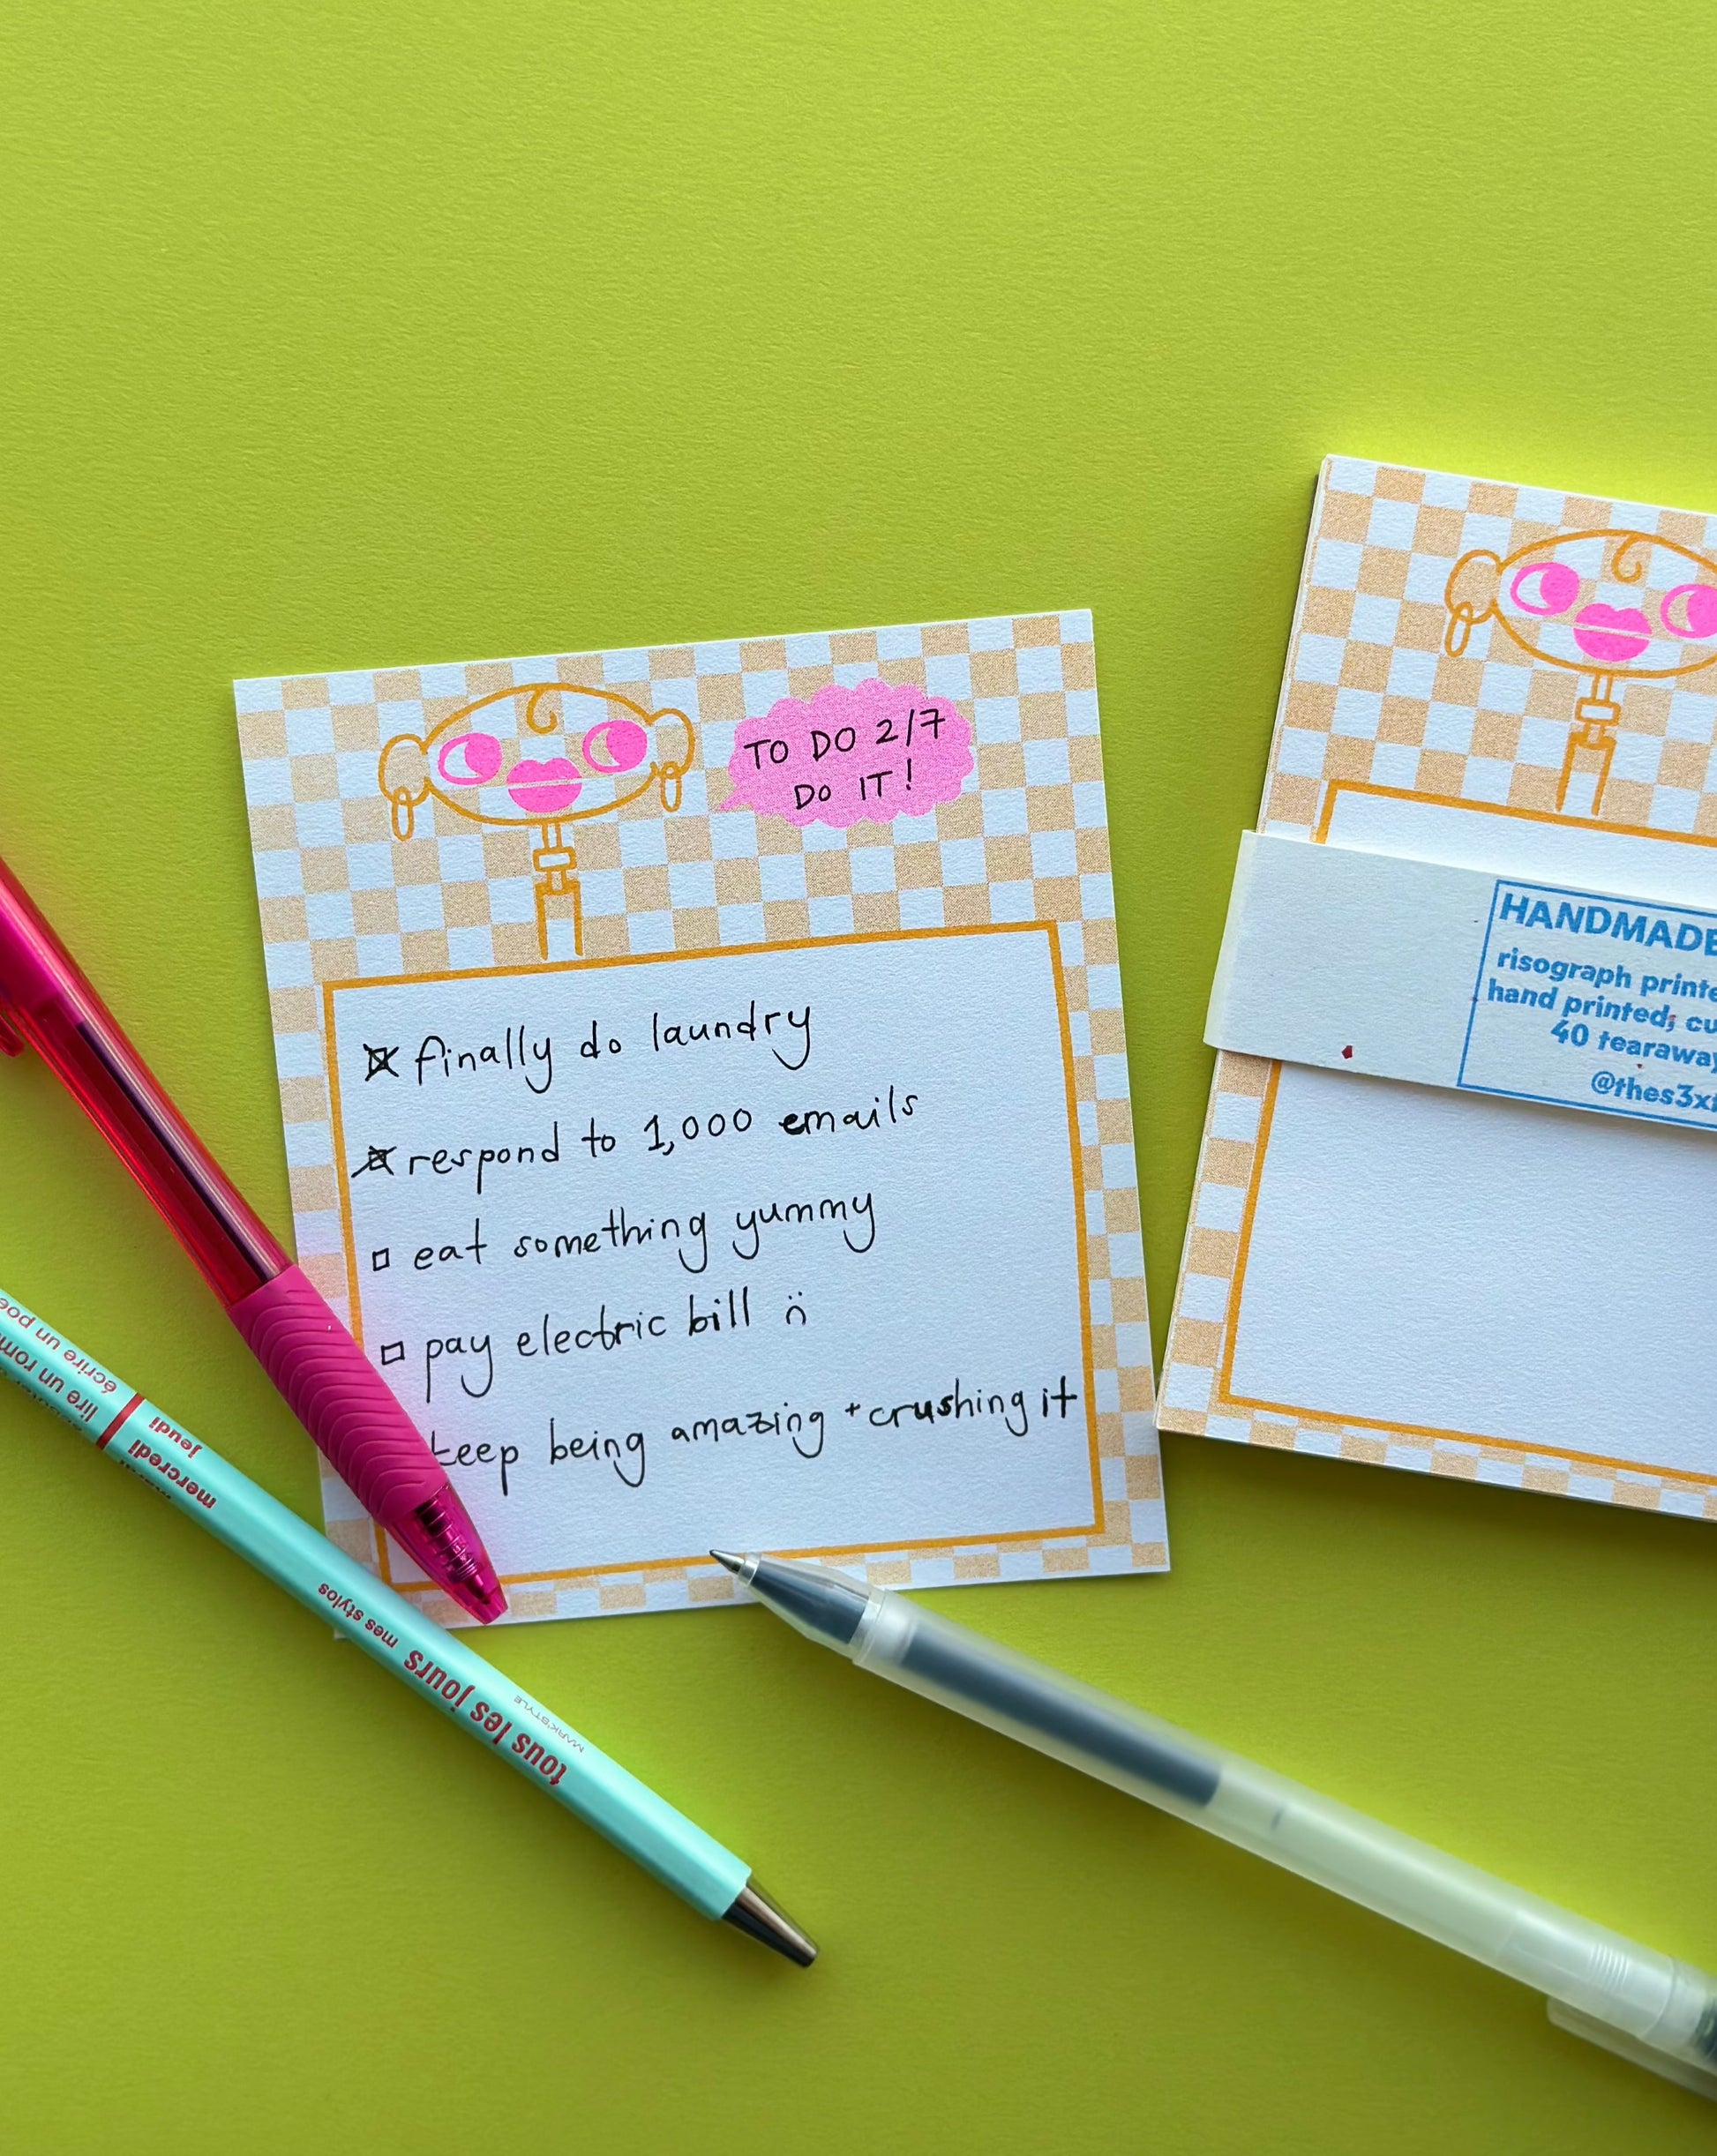 TO DO 2/7
DO IT!
finally do laundry
respond to 1,000 emails
eat something yummy
pay electric bill
keep being amazing + crushing it
HANDMADE
risograph printe
hand printed, cu
40 tearaway
@thes3xt
écrire un poè
lire un rom
jeudi
mercredi
mes stylos
tous les jours
MARK'STYLE